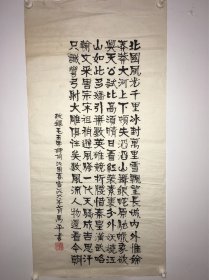 北國風光千里冰封萬里雪飄望長城內外惟餘
莽莽大河上下頓失滔滔山舞銀蛇原馳蠟象欲
與天公試比高須晴日看紅裝素裹分外妖嬈江
山如此多嬌引無數英雄競折腰惜秦皇漢武略
輸文采唐宗宋祖稍遜風騷一代天驕成吉思汗
只識彎弓射大雕俱往矣數風流人物還看今朝
毛主席詩詞沁園春雪